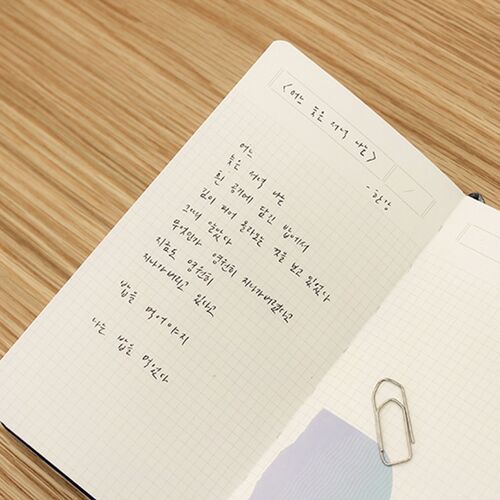 <어느 늦은 저녁 나는>
- 한강
어느
늦은 저녁 나는
흰 공기에 담긴 밥에서
김이 피어 올라오는 것을 보고 있었다
그때 알았다
무엇인가 영원히 지나가버렸다고
지금도 영원히
지나가버리고 있다고
밥을 먹어야지
나는 밥을 먹었다